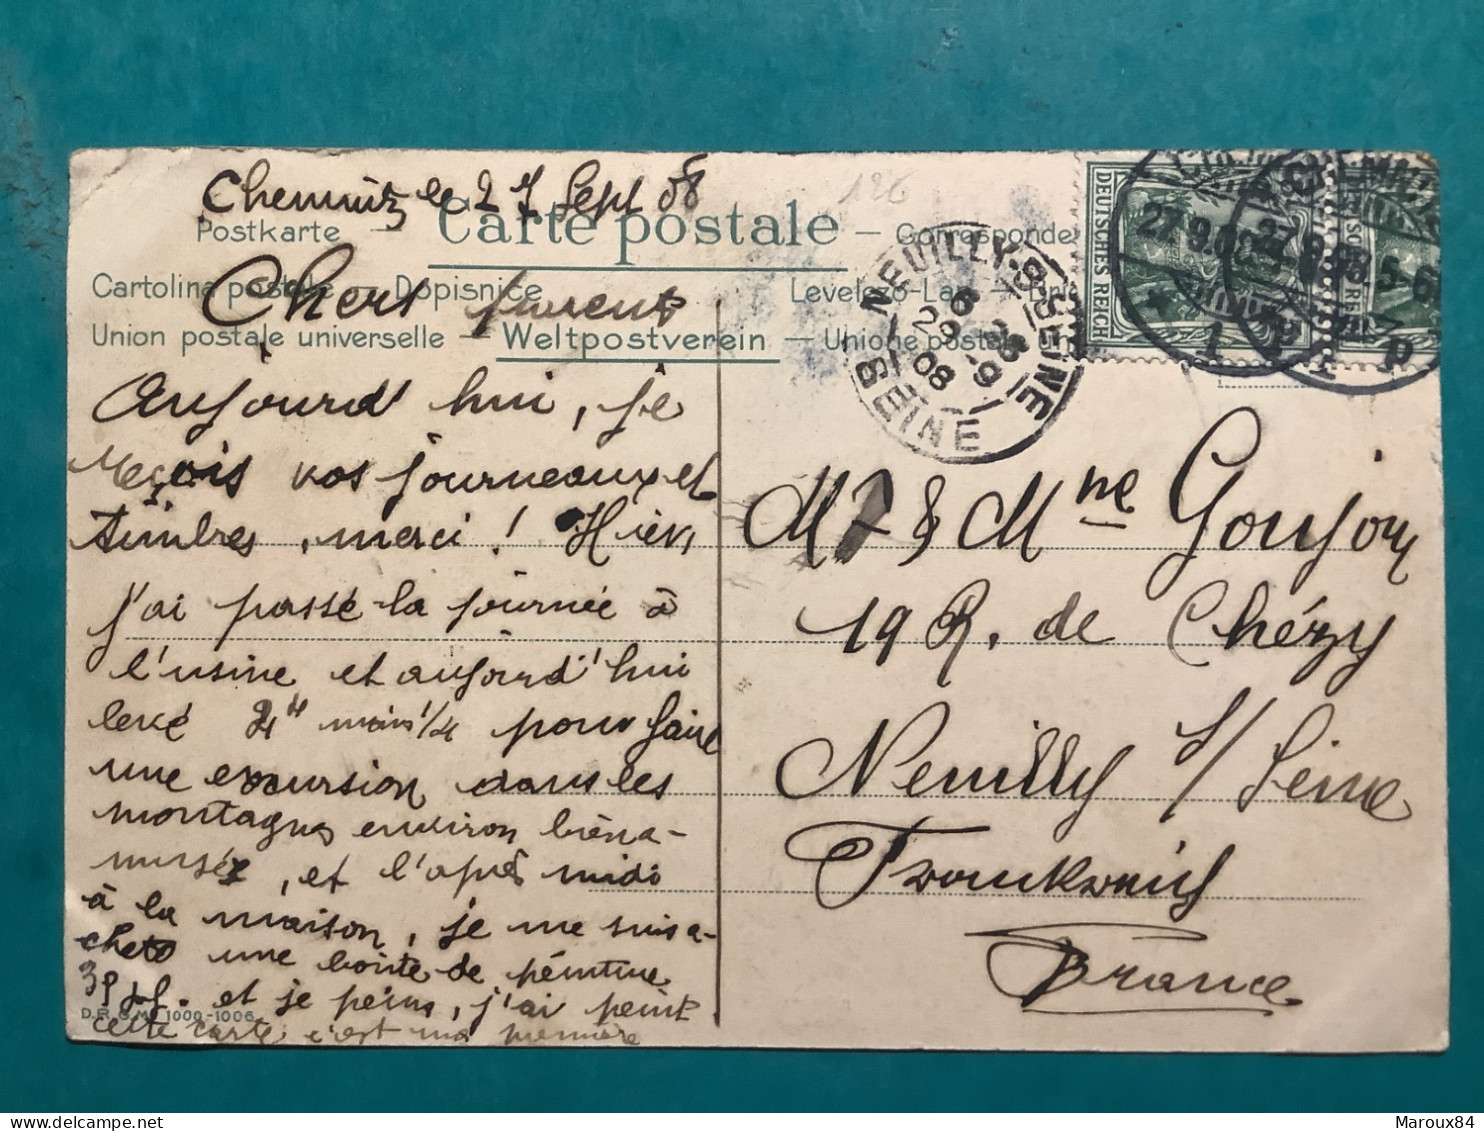 Chemnitz le 27 Sept 08
126
Carte postale
Postkarte — — Corresponde
Cartolina postale — Dopisnice
Levelező-Lap — Bri
Union postale universelle — Weltpostverein — Unione postale
Chers parents
DEUTSCHES REICH
CHEMNITZ
27.9.08
CHEMNITZ
27.9.08.5-6
1
NEUILLY-S-SEINE
6
29-9
08
SEINE
Aujourd'hui, je
reçois vos journeaux et
timbres, merci! Hier,
j'ai passé la journée à
l'usine et aujourd'hui
levé 4h moins 1/4 pour faire
une excursion dans les
montagnes environ bien a-
musée, et l'après midi
à la maison, je me suis a-
cheté une boite de peinture
3f et je peins, j'ai peint
cette carte c'est ma première
D.R.G.M. 1000-1006
Mr & Mme Goujon
19 R. de Chézy
Neuilly s/ Seine
Frankreich
France
Maroux84